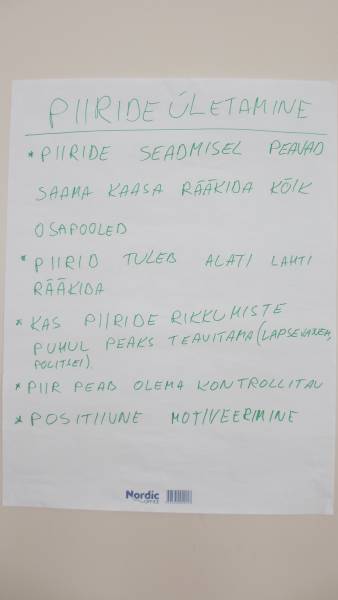 PIIRIDE ÜLETAMINE
* PIIRIDE SEADMISEL PEAVAD
SAAMA KAASA RÄÄKIDA KÕIK
OSAPOOLED
* PIIRID TULEB ALATI LAHTI
RÄÄKIDA
* KAS PIIRIDE RIKKUMISTE
PUHUL PEAKS TEAVITAMA (LAPSEVANEM,
POLITSEI)
* PIIR PEAB OLEMA KONTROLLITAV
* POSITIIVNE MOTIVEERIMINE
Nordic
office